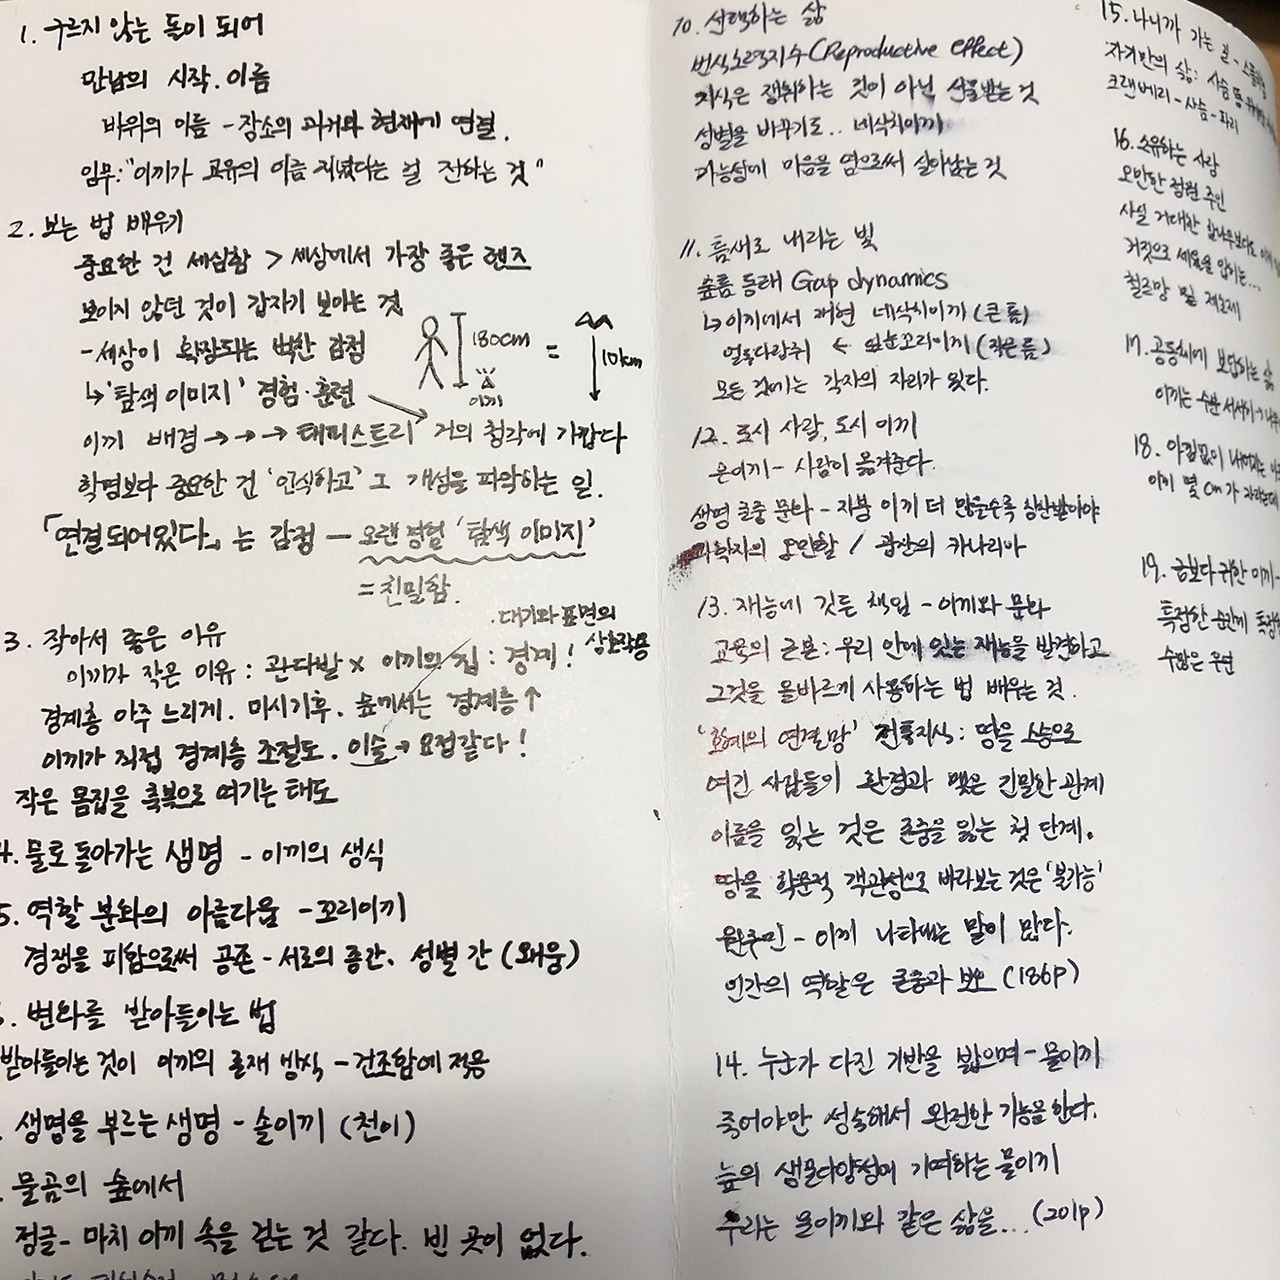 1. 구르지 않는 돌이 되어
만남의 시작. 이름
바위의 이름 - 장소의 과거와 현재가 연결.
임무: "이끼가 고유의 이름 지녔다는 걸 전하는 것"
2. 보는 법 배우기
중요한 건 세심함 > 세상에서 가장 좋은 렌즈
보이지 않던 것이 갑자기 보이는 것
- 세상이 확장되는 벅찬 감정
↳ '탐색 이미지' 경험·훈련
180cm = 10km
이끼
이끼 배경 → → → 태피스트리 거의 청각에 가깝다
학명보다 중요한 건 '인식하고' 그 개성을 파악하는 일.
「연결되어있다」는 감정 — 오랜 경험 '탐색 이미지'
= 친밀함.
3. 작아서 좋은 이유
· 대기와 표면의 상호작용
이끼가 작은 이유 : 관다발 × 이끼의 집 : 경계!
경계층 아주 느리게. 미시기후. 숲에서는 경계층↑
이끼가 직접 경계층 조절도. 이슬 → 요정같다!
작은 몸집을 축복으로 여기는 태도
4. 물로 돌아가는 생명 - 이끼의 생식
5. 역할 분화의 아름다움 - 꼬리이끼
경쟁을 피함으로써 공존 - 서로의 종간. 성별 간 (왜웅)
6. 변화를 받아들이는 법
받아들이는 것이 이끼의 존재 방식 - 건조함에 적응
생명을 부르는 생명 - 솔이끼 (천이)
물곰의 숲에서
정글 - 마치 이끼 속을 걷는 것 같다. 빈 곳이 없다.
10. 선택하는 삶
번식노력지수 (Reproductive effect)
지식은 쟁취하는 것이 아닌 선물받는 것
성별을 바꾸기도.. 네삭치이끼
가능성에 마음을 엶으로써 살아남는 것
11. 틈새로 내리는 빛
숲틈 동태 Gap dynamics
↳ 이끼에서 재현 네삭치이끼 (큰 틈)
얼룩다람쥐 ← 꼬리이끼 (작은 틈)
모든 것에는 각자의 자리가 있다.
12. 도시 사람, 도시 이끼
은이끼 - 사람이 옮겨준다.
생명 존중 문화 - 지붕 이끼 더 많을수록 칭찬받아야
과학자의 오만함 / 광산의 카나리아
13. 재능에 깃든 책임 - 이끼와 문화
교육의 근본 : 우리 안에 있는 재능을 발견하고
그것을 올바르게 사용하는 법 배우는 것.
'호혜의 연결망' 전통지식 : 땅을 스승으로
여긴 사람들이 환경과 맺은 긴밀한 관계
이름을 잃는 것은 존중을 잃는 첫 단계.
땅을 학문적 객관성으로 바라보는 것은 '불가능'
원주민 - 이끼 나타내는 말이 많다.
인간의 역할은 존중과 보호 (186p)
14. 누군가 다진 기반을 밟으며 - 물이끼
죽어야만 성숙해서 완전한 기능을 한다.
늪의 생물다양성에 기여하는 물이끼
우리는 물이끼와 같은 삶을... (201p)
15. 나니까 가는 길 -
자기만의 삶 : 사슴 똥
크랜베리 - 사슴 - 파리
16. 소유하는 사랑
오만한 정원 주인
사실 거대한
거짓으로 세월을 입히는...
철조망 및 제초제
17. 공동체에 보답하는 숲
이끼는 수분
18. 아낌없이 내어주는
이끼 몇 cm가
19. 금보다 귀한 이끼 -
특정한 순간에
수많은 우연